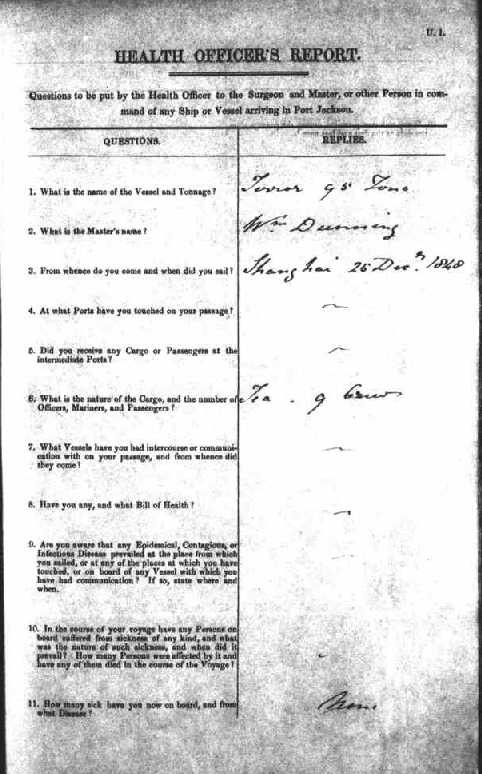 U. 1.
HEALTH OFFICER'S REPORT.
Questions to be put by the Health Officer to the Surgeon and Master, or other Person in com-
mand of any Ship or Vessel arriving in Port Jackson.
QUESTIONS.
REPLIES.
1. What is the name of the Vessel and Tonnage?
Tons
2. What is the Master's name?
Wm Dunning
3. From whence do you come and when did you sail?
Shanghai 25 Decr. 1848
4. At what Ports have you touched on your passage?
~
5. Did you receive any Cargo or Passengers at the
intermediate Ports?
~
6. What is the nature of the Cargo, and the number of
Officers, Mariners, and Passengers?
Tea . 9 Crew
7. What Vessels have you had intercourse or communi-
cation with on your passage, and from whence did
they come?
~
8. Have you any, and what Bill of Health?
~
9. Are you aware that any Epidemical, Contagious, or
Infectious Disease prevailed at the place from which
you sailed, or at any of the places at which you have
touched, or on board of any Vessel with which you
have had communication? If so, state where and
when.
10. In the course of your voyage have any Persons on
board suffered from sickness of any kind, and what
was the nature of such sickness, and when did it
prevail? How many Persons were affected by it and
have any of them died in the course of the Voyage?
11. How many sick have you now on board, and from
what Disease?
None